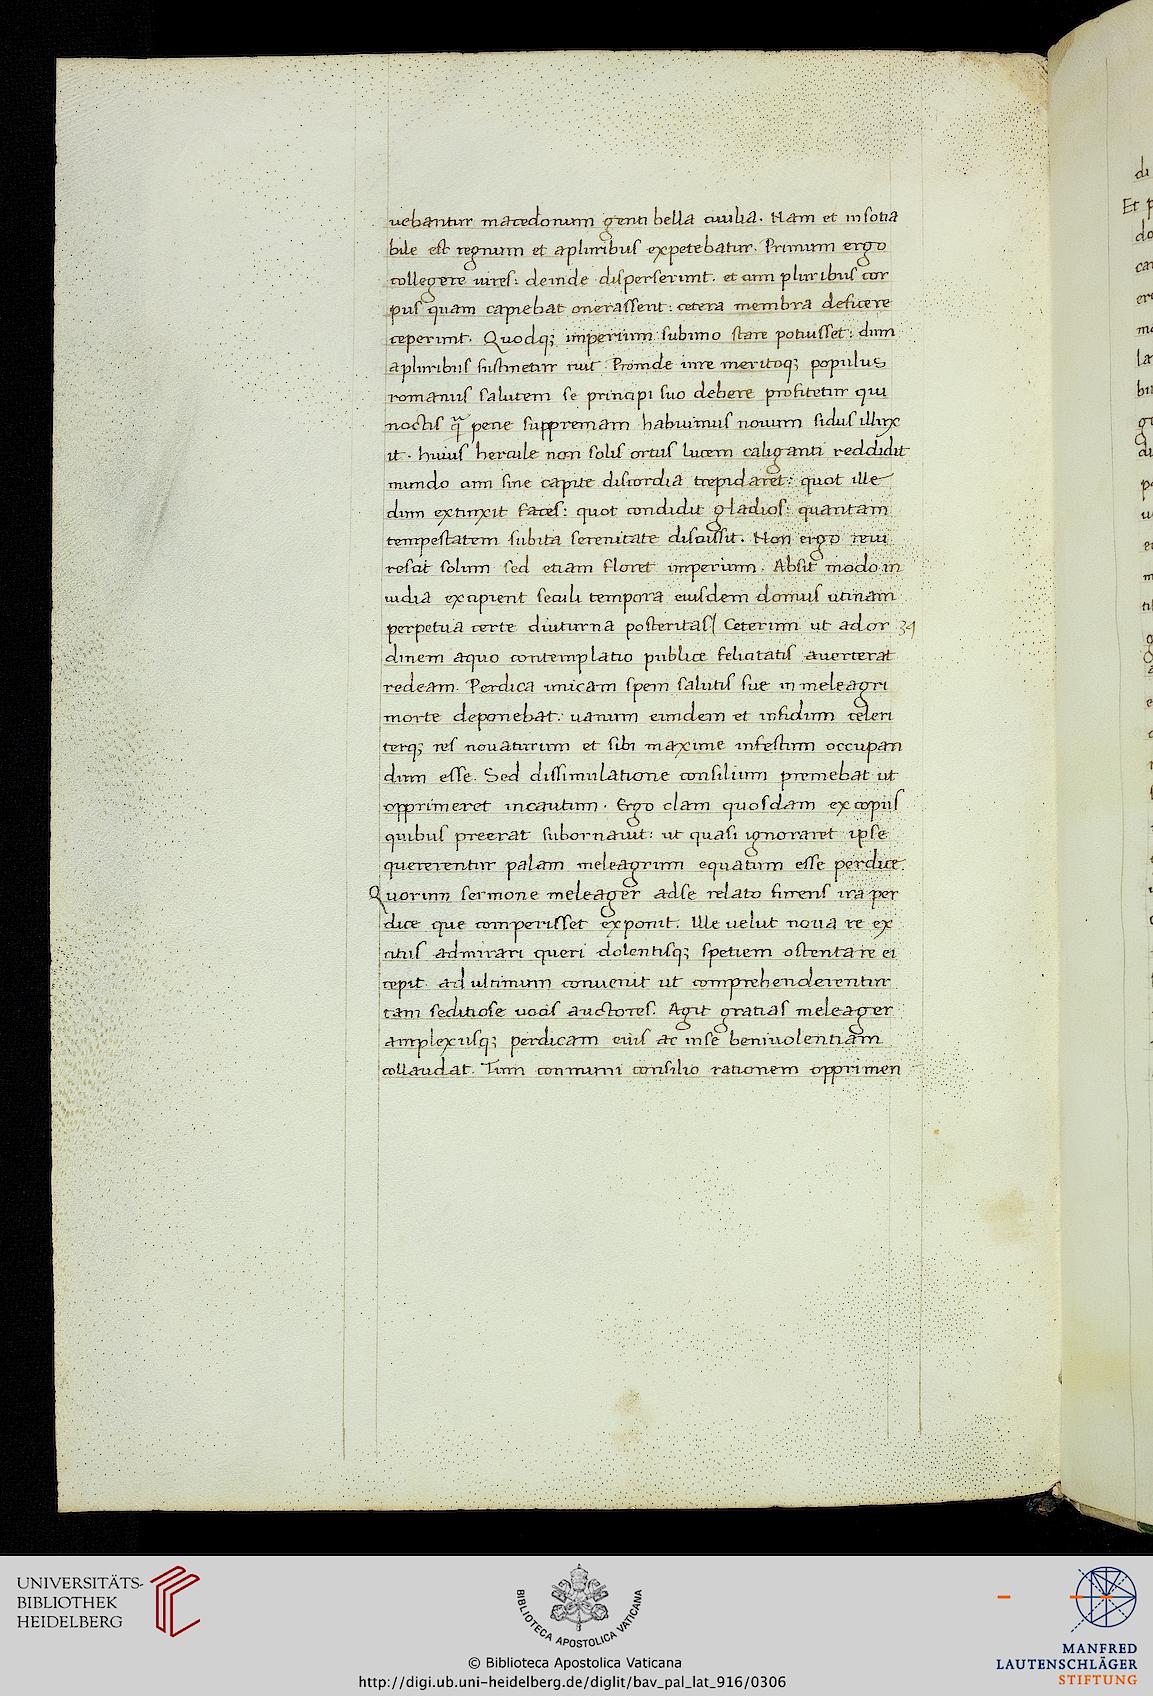 uebantur macedonum genti bella ciuilia. Nam et insotia
bile est regnum et apluribus expetebatur. Primum ergo
collegere uires: deinde disperserunt. et cum pluribus cor
pus quam capiebat onerassent: cetera membra deficere
ceperunt. Quodq; imperium subuno stare potuisset: dum
apluribus sustinetur ruit. Proinde iure meritoq; populus
romanus salutem se principi suo debere profitetur qui
noctis q̄ pene suppremam habuimus nouum sidus illux
it. huius hercule non solis ortus lucem caliganti reddidit
mundo cum sine capite discordia trepidaret: quot ille
dum extinxit faces: quot condidit gladios: quantam
tempestatem subita serenitate discussit. Non ergo reui
rescit solum sed etiam floret imperium. Absit modo in
uidia excipient seculi tempora eiusdem domus utinam
perpetua certe diuturna posteritas/ Ceterum ut ad or
dinem aquo contemplatio publice felicitatis auerterat
redeam. Perdica unicam spem salutis sue in meleagri
morte deponebat: uanum eundem et infidum celeri
terq; res nouaturum et sibi maxime infestum occupan
dum esse. Sed dissimulatione consilium premebat ut
opprimeret incautum. Ergo clam quosdam ex copiis
quibus preerat subornauit: ut quasi ignoraret ipse
quererentur palam meleagrum equatum esse perdice.
Quorum sermone meleager adse relato furens ira per
dice que comperisset exponit. Ille uelut noua re ex
citus admirari queri dolentisq; spetiem ostentare ei
cepit. ad ultimum conuenit ut comprehenderentur
tam seditiose uocis auctores. Agit gratias meleager
amplexusq; perdicam eius ac inse beniuolentiam
collaudat. Tum conmuni consilio rationem opprimen
UNIVERSITÄTS-
BIBLIOTHEK
HEIDELBERG
BIBLIOTECA APOSTOLICA VATICANA
© Biblioteca Apostolica Vaticana
http://digi.ub.uni-heidelberg.de/diglit/bav_pal_lat_916/0306
MANFRED
LAUTENSCHLÄGER
STIFTUNG